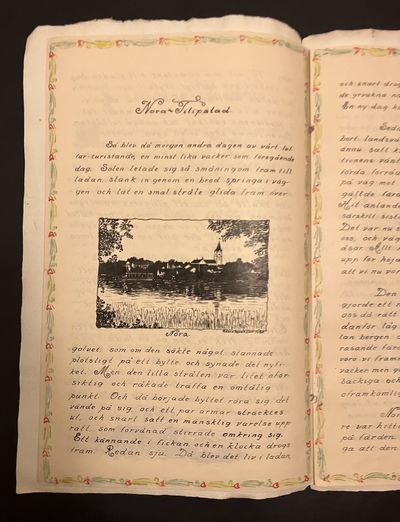 Nora - Filipstad
Så blev då morgon andra dagen av vårt luf-
far-turistande, en minst lika vacker som föregående
dag. Solen letade sig så småningom fram till
ladan, slank in genom en bred springa i väg-
gen och lät en smal stråle glida fram över
Nora
golvet, som om den sökte något, stannade
plötsligt på ett bylte och synade det nyfi-
ket. Men den lilla strålen var litet oför-
siktig och råkade träffa en omtålig
punkt. Och då började byltet röra sig, det
vände på sig och ett par armar sträcktes
ut, och snart satt en mänsklig varelse upp
rätt, som förvånad stirrade omkring sig.
Ett kännande i fickan, och en klocka drogs
fram. Redan sju. Då blev det liv i ladan,
och snart
En ny dag
bart landsvä
annu satt
tionens
torda
på väg mot
Hit anlände
särskilt
Det var
oss, och väg
upp för
att vi
Den
gjorde ett
oss då rätt
danför
lan bergen
rasande
voro vi
vacker men
backiga och
oframkomli
re var
på färden.
ga att den